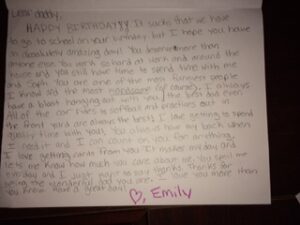 Dear daddy,
HAPPY BIRTHDAY!! It sucks that we have
to go to school on your birthday, but I hope you have
an absolutely amazing day! You deserve more than
anyone else. You work so hard at work and around the
house and you still have time to spend time with me
and Soph. You are one of the most funniest people
I know and the most handsome (of course). I always
have a blast hanging out with you! the best and even
All of our rides to softball and practices out in
the front yard are always the best! I love getting to spend
my time with you. You always have my back when
I need it and I can count on you for anything.
I love getting from you. It makes my day and
let's me know how much you care about me. You spoil me
everyday and I just want to say thanks. Thanks for
being the wonderful dad you are. I love you more than
you know. Have a great day!
♡, Emily